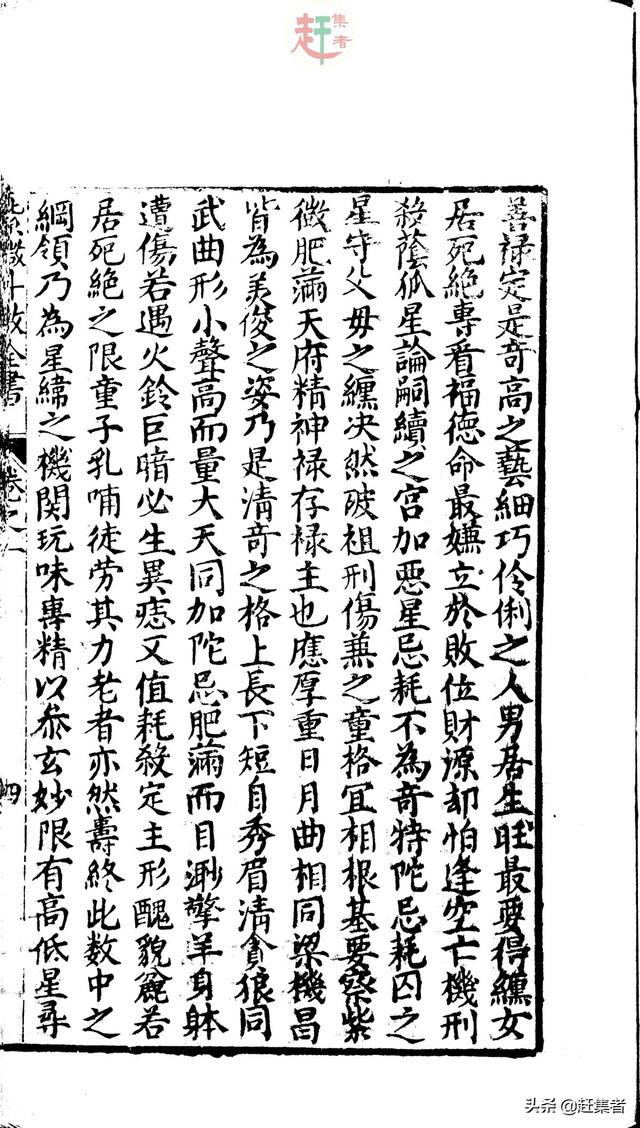 赶集者
善禄定是竒高之藝細巧伶俐之人男居生旺最要得纏女
居死絶專看福德命最嫌立於敗位財源却怕逢空亡機刑
殺蔭孤星論嗣續之宮加惡星忌耗不為竒特陀忌耗囚之
星守父母之纏决然破祖刑傷兼之童格冝相根基要察紫
微肥滿天府精神禄存禄主也應厚重日月曲相同梁機昌
皆為美俊之姿乃是清竒之格上長下短目秀眉清貪狼同
武曲形小聲高而量大天同加陀忌肥滿而目渺擎羊身躰
遭傷若遇火鈴巨暗必生異痣又值耗殺定主形醜貌麄若
居死絶之限童子乳哺徒劳其力老者亦然壽終此数中之
綱領乃為星緯之機関玩味專精以叅玄妙限有髙低星尋
紫微斗数全書 卷之一 四
头条 @赶集者